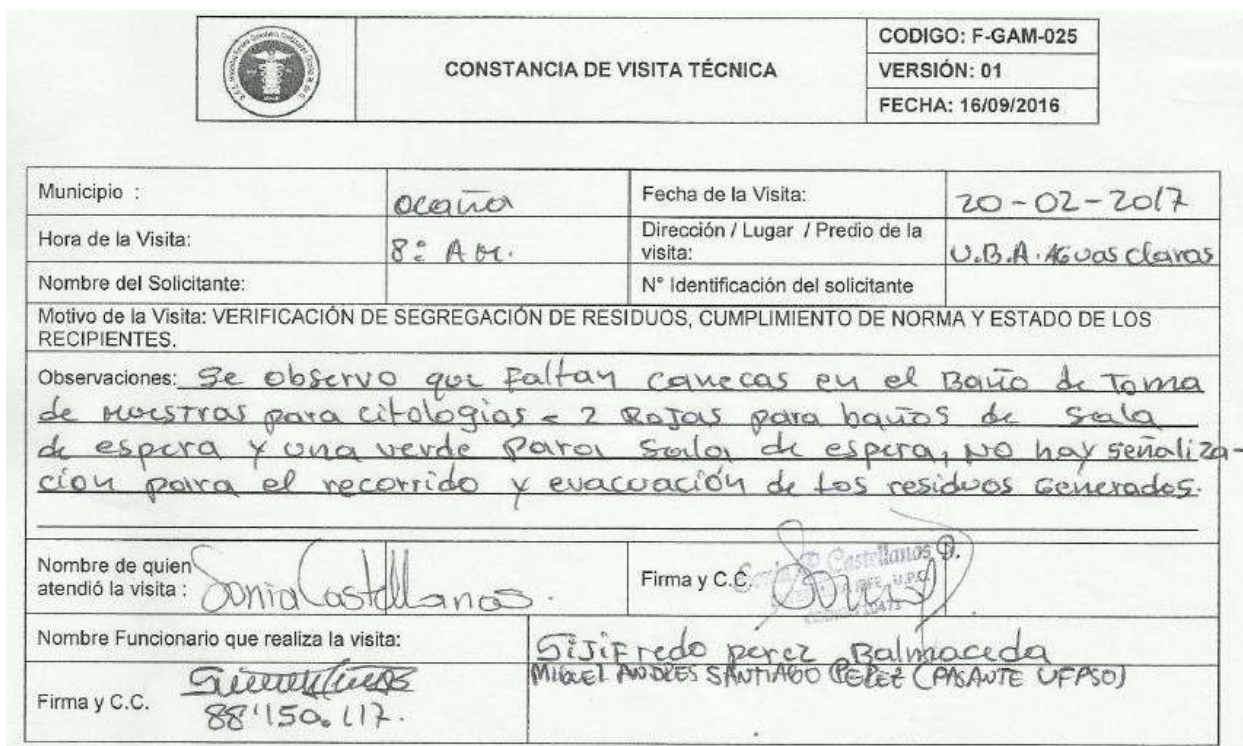 CONSTANCIA DE VISITA TÉCNICA
CODIGO: F-GAM-025
VERSIÓN: 01
FECHA: 16/09/2016
Municipio : ocaña Fecha de la Visita: 20-02-2017
Hora de la Visita: 8: AM. Dirección / Lugar / Predio de la
visita: U.B.A. Aguas claras
Nombre del Solicitante: N° Identificación del solicitante
Motivo de la Visita: VERIFICACIÓN DE SEGREGACIÓN DE RESIDUOS, CUMPLIMIENTO DE NORMA Y ESTADO DE LOS
RECIPIENTES.
Observaciones: Se observo que Faltan canecas en el Baño de Toma
de muestras para citologias = 2 Rojas para baños de Sala
de espera y una verde para Sala de espera, NO hay señaliza-
ción para el recorrido y evacuación de Los residuos Generados.
Nombre de quien
atendió la visita : Sonia Castellanos.
Firma y C.C. Castellanos
Nombre Funcionario que realiza la visita: Sijifredo perez Balmaceda
MIGUEL ANDRES SANTIAGO PEREZ (PASANTE UFPSO)
Firma y C.C. 88'150.117.